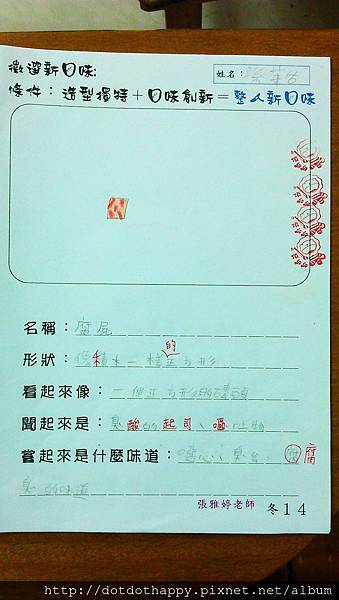 徵選新口味:
姓名:
條件：造型獨特＋口味創新＝整人新口味
名稱：腐屍
形狀：像積木一樣的正方形
看起來像：一個正方形的罐頭
聞起來是：臭酸的起司、嘔吐物
嘗起來是什麼味道：噁心、臭 腐
臭 的味道
張雅婷老師 冬14
http://dotdothappy.pixnet.net/album